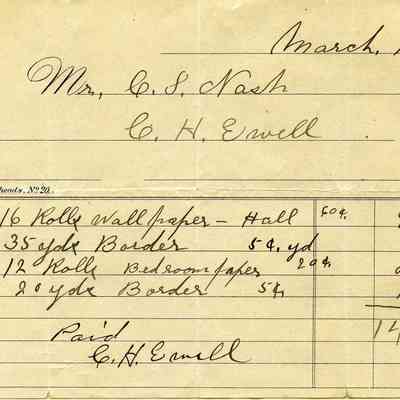 March,
Mr. C. S. Nash
C. H. Ewell
heads, No 20.
16 Rolls Wall paper - Hall 60¢
35 yds Border 5¢ yd
12 Rolls Bedroom paper 20¢
20 yds Border 5¢
14
Paid
C. H. Ewell